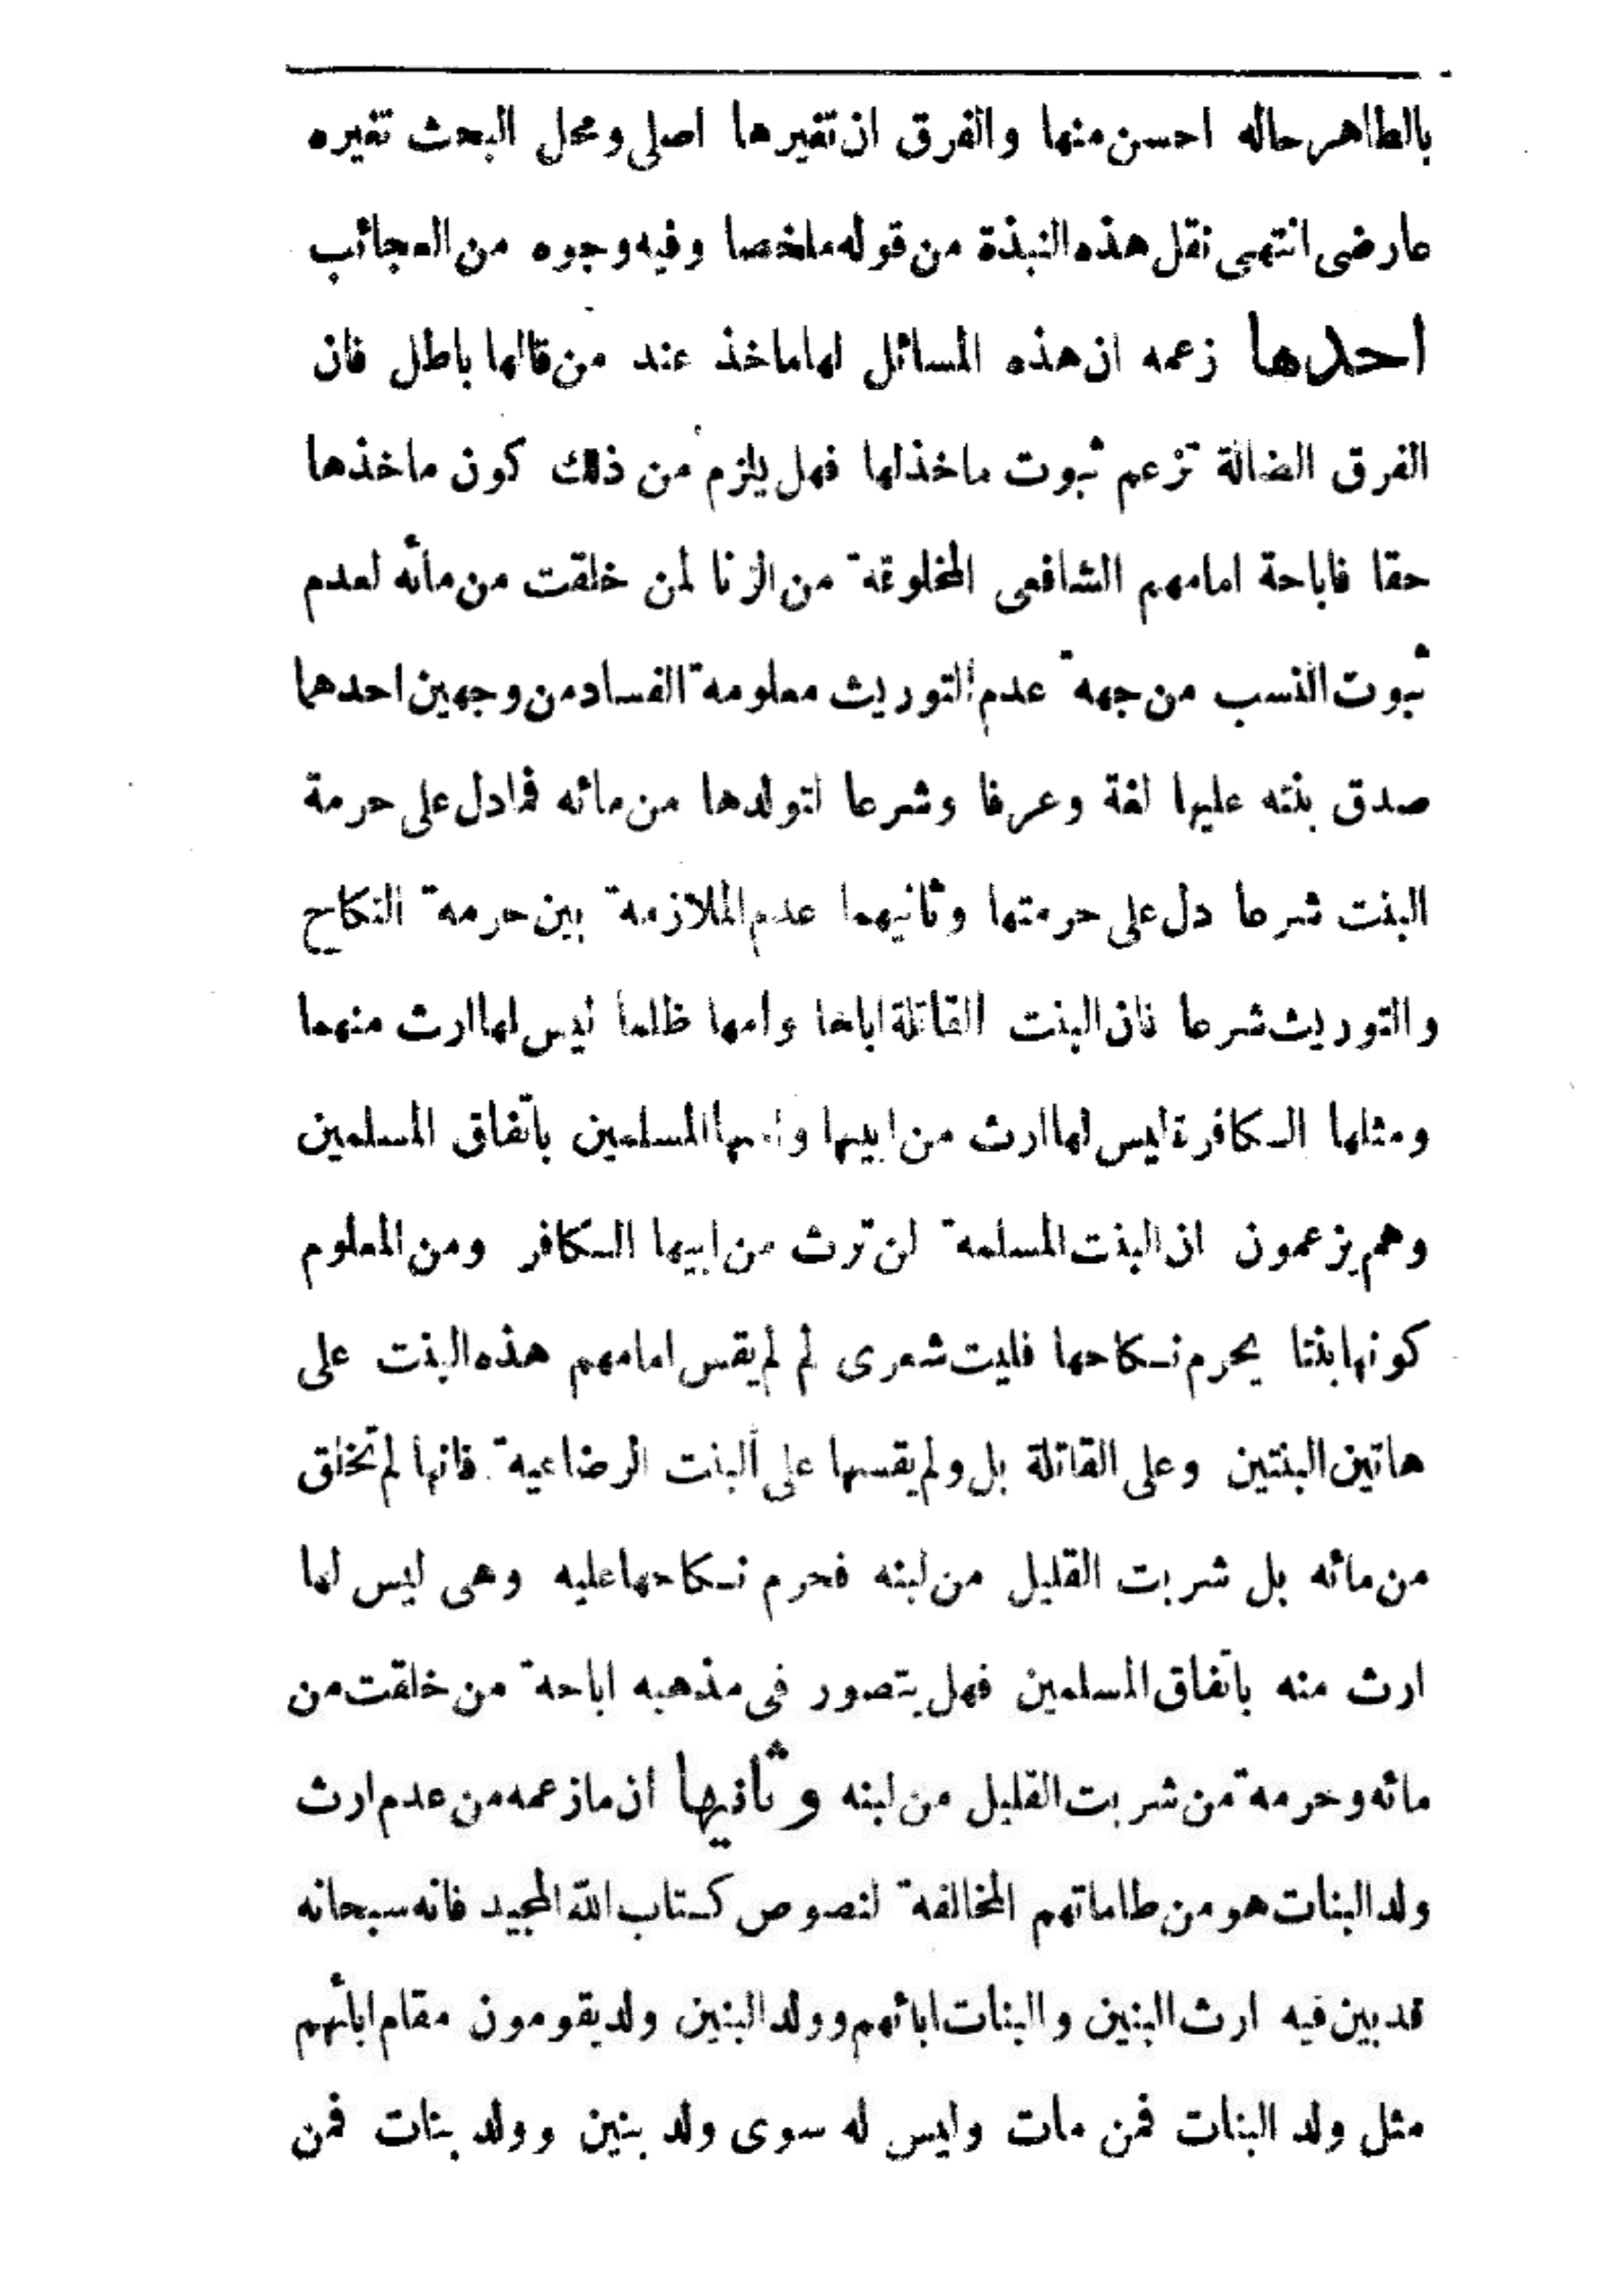 بالطاهر حاله احسن منها والفرق ان تغيرها اصلى ومحل البحث تغيره
عارضى انتهى نقل هذه النبذة من قوله ملخصا وفيه وجوه من العجائب
احدها زعمه ان هذه المسائل لها ماخذ عند من قالها باطل فان
الفرق الضالة تزعم ثبوت ماخذ لها فهل يلزم من ذلك كون ماخذها
حقا فاباحة امامهم الشافعى المخلوقة من الزنا لمن خلقت من مائه لعدم
ثبوت النسب من جهة عدم التوريث معلومة الفساد من وجهين احدهما
صدق بنته عليها لغة وعرفا وشرعا لتولدها من مائه فمادل على حرمة
البنت شرعا دل على حرمتها وثانيهما عدم الملازمة بين حرمة النكاح
والتوريث شرعا فان البنت القاتلة اباها وامها ظلما ليس لها ارث منهما
ومثلها الكافرة ليس لها ارث من ابيها وامها المسلمين باتفاق المسلمين
وهم يزعمون ان البنت المسلمة لن ترث من ابيها الكافر ومن المعلوم
كونها بنتا يحرم نكاحها فليت شعرى لم لم يقس امامهم هذه البنت على
هاتين البنتين وعلى القاتلة بل ولم يقسها على البنت الرضاعية فانها لم تخلق
من مائه بل شربت القليل من لبنه فحرم نكاحها عليه وهى ليس لها
ارث منه باتفاق المسلمين فهل يتصور فى مذهبه اباحة من خلقت من
مائه وحرمة من شربت القليل من لبنه وثانيها ان ما زعمه من عدم ارث
ولد البنات هو من طاماتهم المخالفة لنصوص كتاب الله المجيد فانه سبحانه
قد بين فيه ارث البنين والبنات ابائهم وولد البنين ولد يقومون مقام ابائهم
مثل ولد البنات فمن مات وليس له سوى ولد بنين وولد بنات فمن